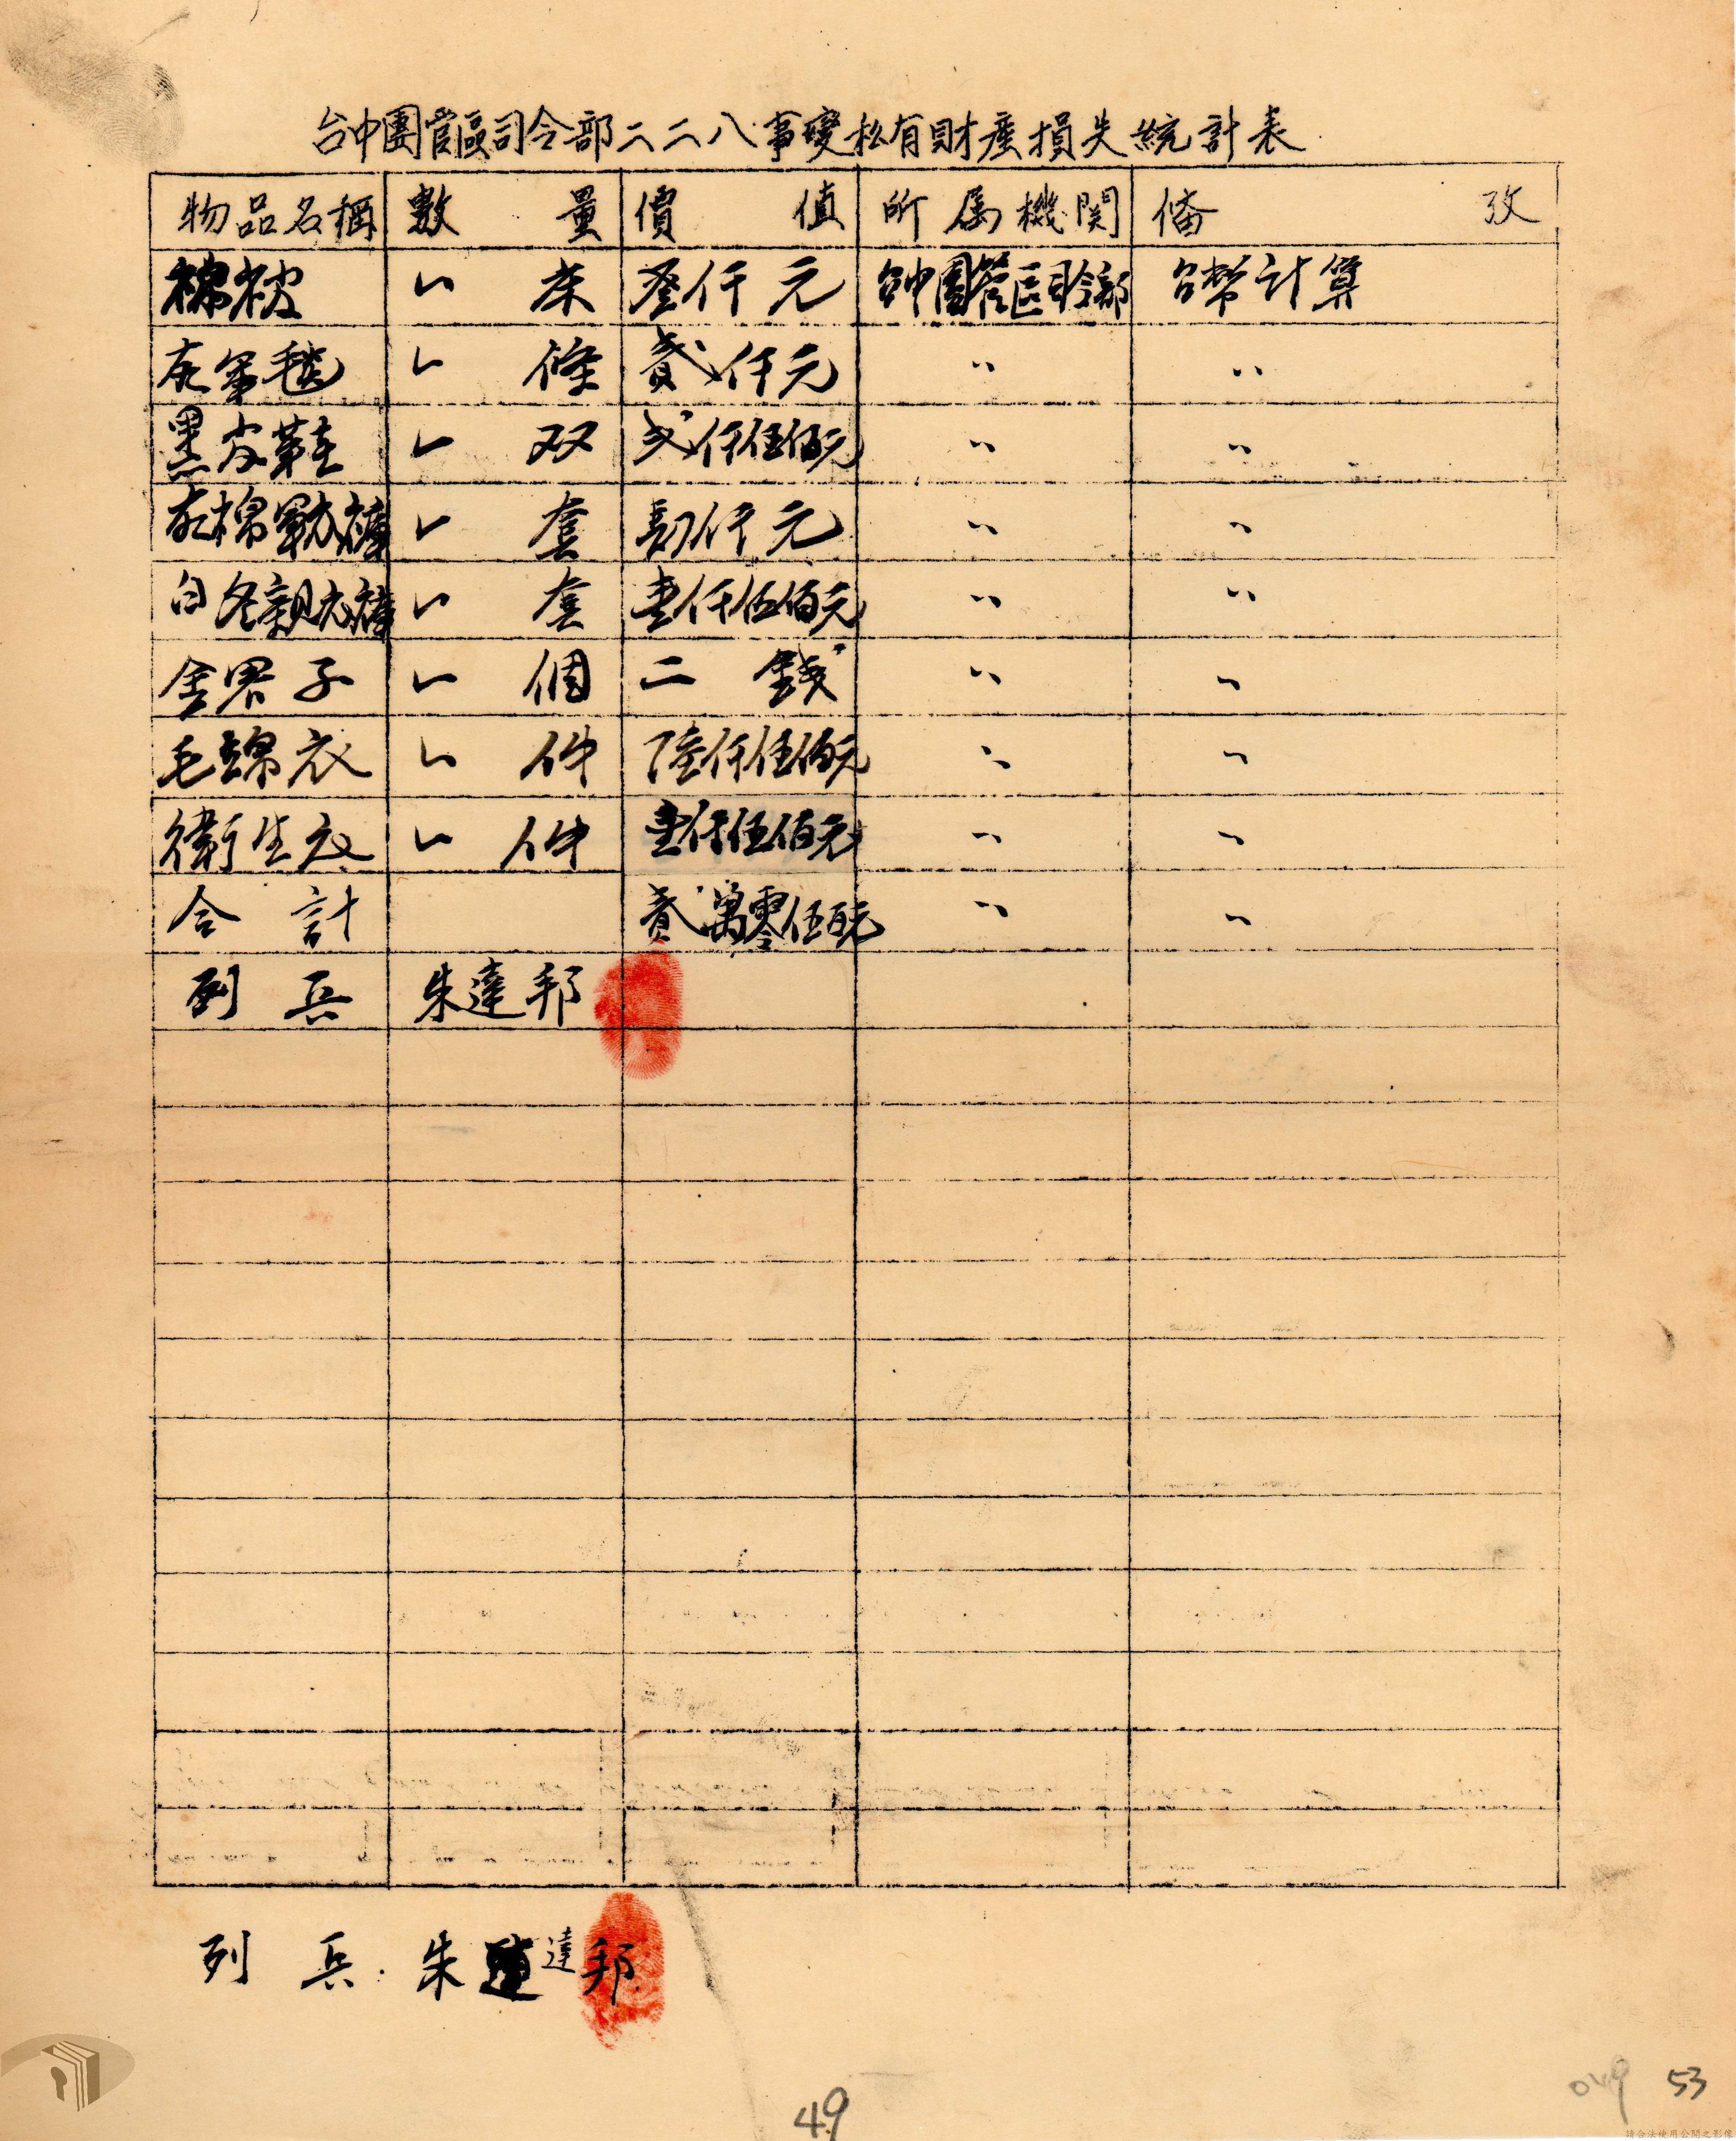 台中團管區司令部二二八事變私有財產損失統計表
物品名稱 數量 價值 所屬機関 俻攷
棉被 〃 床 叁仟元 台中團管區司令部 台幣計算
灰軍毯 〃 條 貳仟元 〃 〃
黑皮鞋 〃 双 弍仟伍佰元 〃 〃
灰棉軍衣褲 〃 套 仟元 〃 〃
白冬親衣褲 〃 套 壹仟伍佰元 〃 〃
金界子 〃 個 二錢 〃 〃
毛綿衣 〃 件 陸仟伍佰元 〃 〃
衛生衣 〃 件 壹仟伍佰元 〃 〃
合計 貳萬零伍百元 〃 〃
列兵 朱達邦
列兵 朱達邦
49
049 53
請合法使用公開之影像